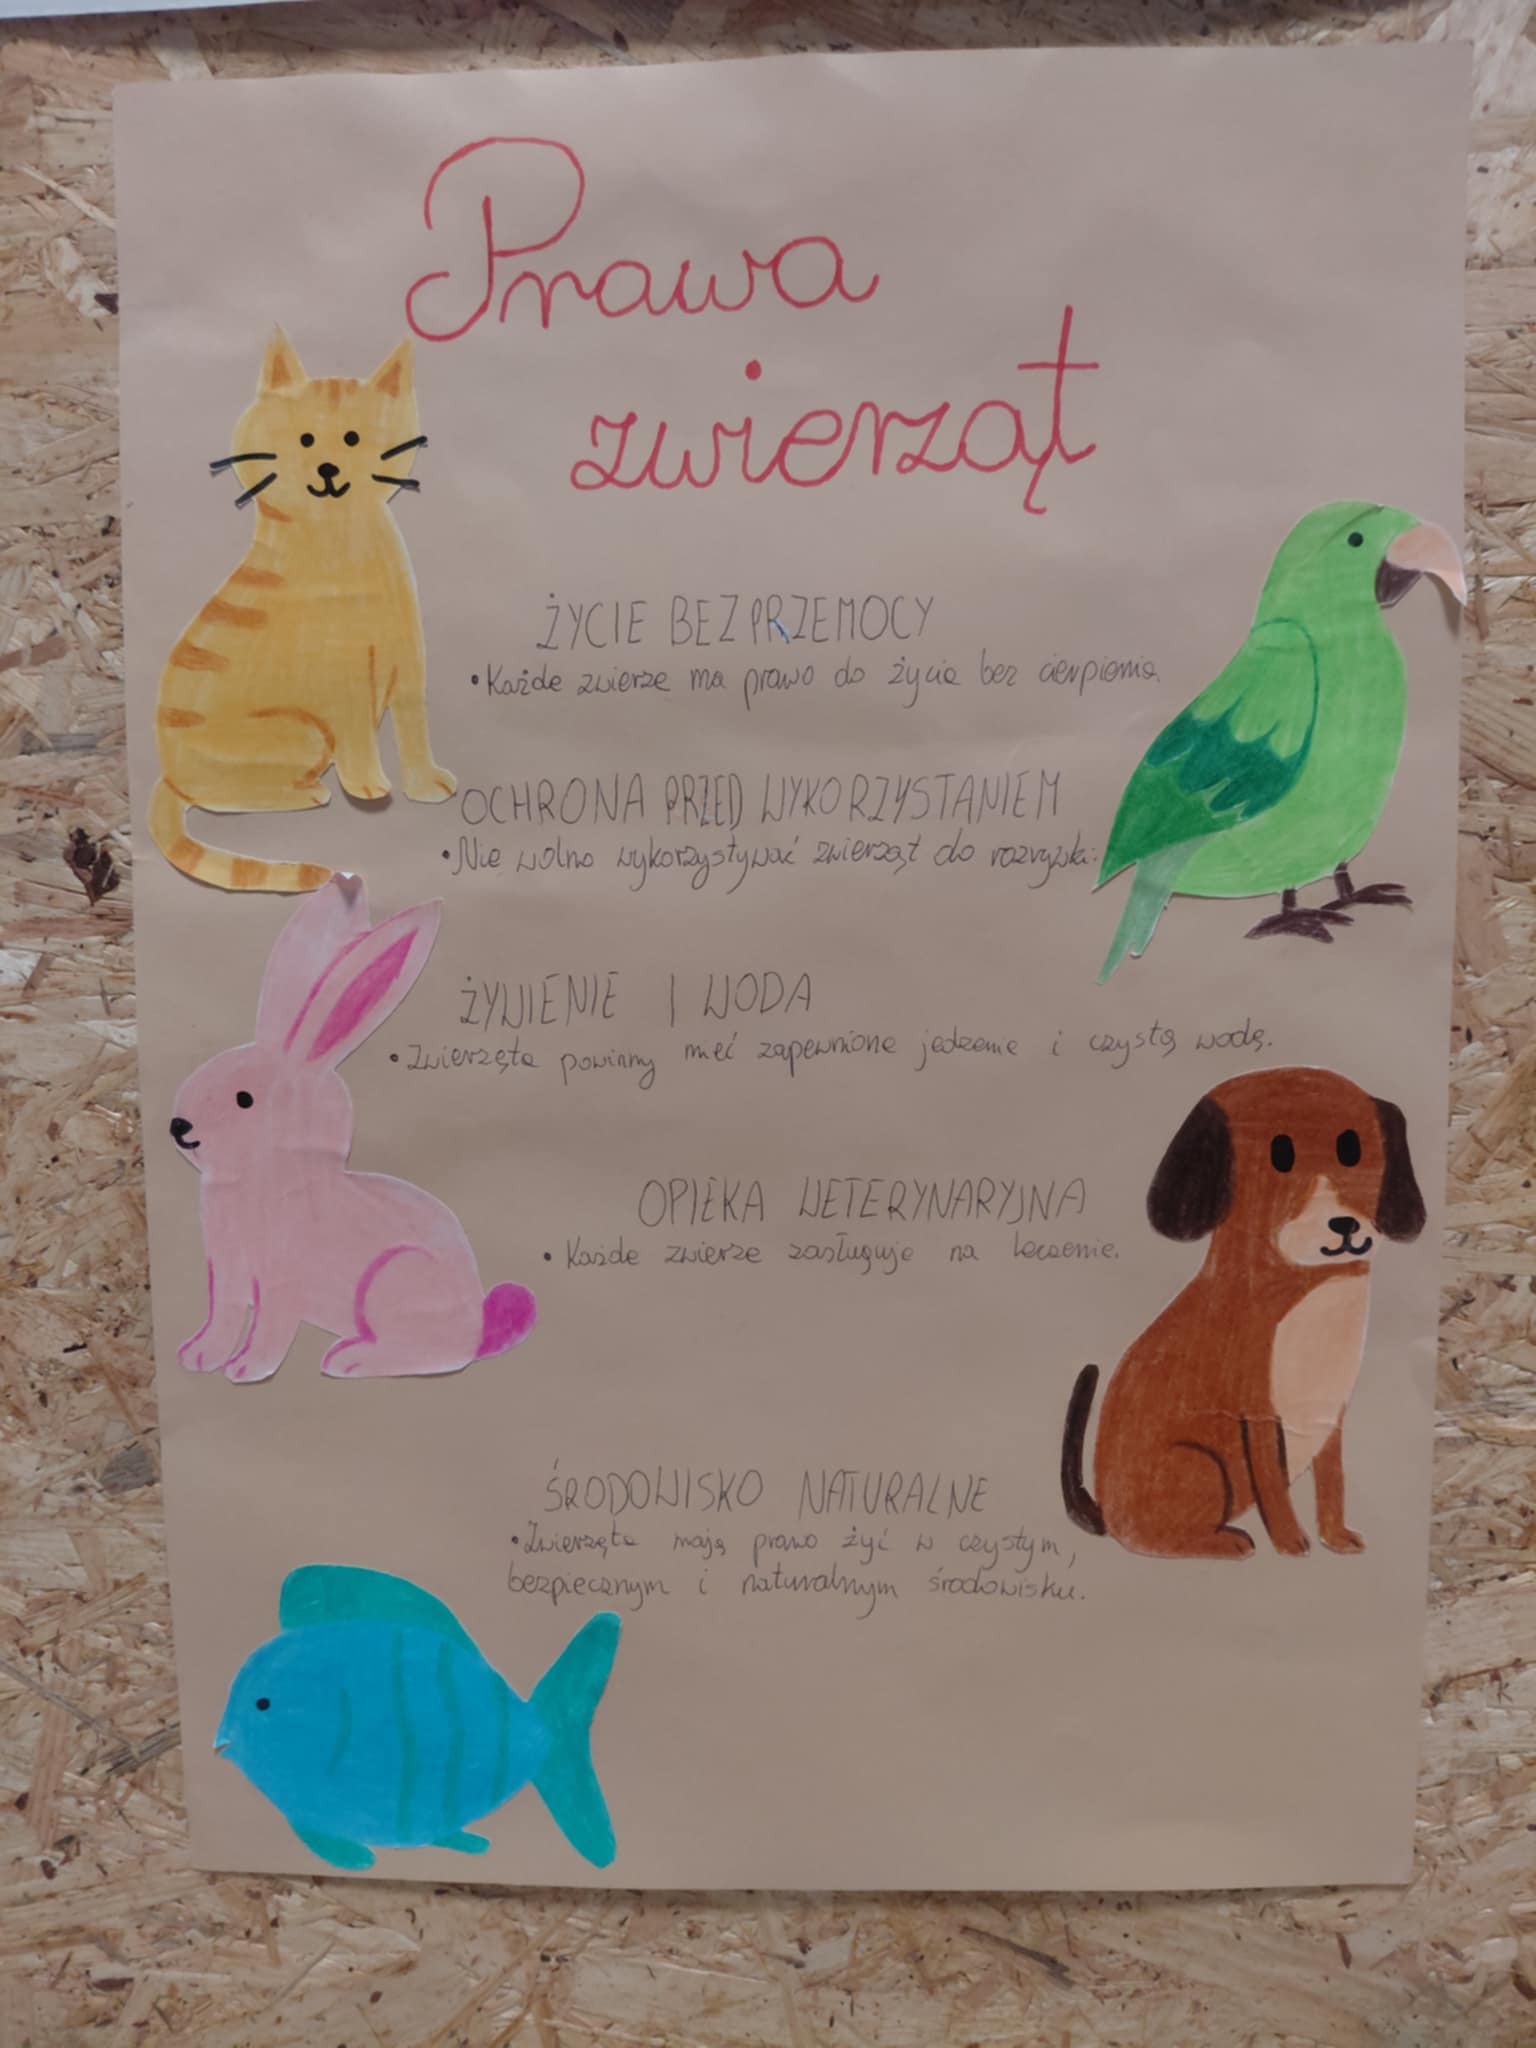 Prawa
zwierząt
ŻYCIE BEZ PRZEMOCY
• Każde zwierze ma prawo do życia bez cierpienia.
OCHRONA PRZED WYKORZYSTANIEM
• Nie wolno wykorzystywać zwierząt do rozrywki.
ŻYWIENIE I WODA
• Zwierzęta powinny mieć zapewnione jedzenie i czystą wodę.
OPIEKA WETERYNARYJNA
• Każde zwierze zasługuje na leczenie.
ŚRODOWISKO NATURALNE
• Zwierzęta mają prawo żyć w czystym,
bezpiecznym i naturalnym środowisku.